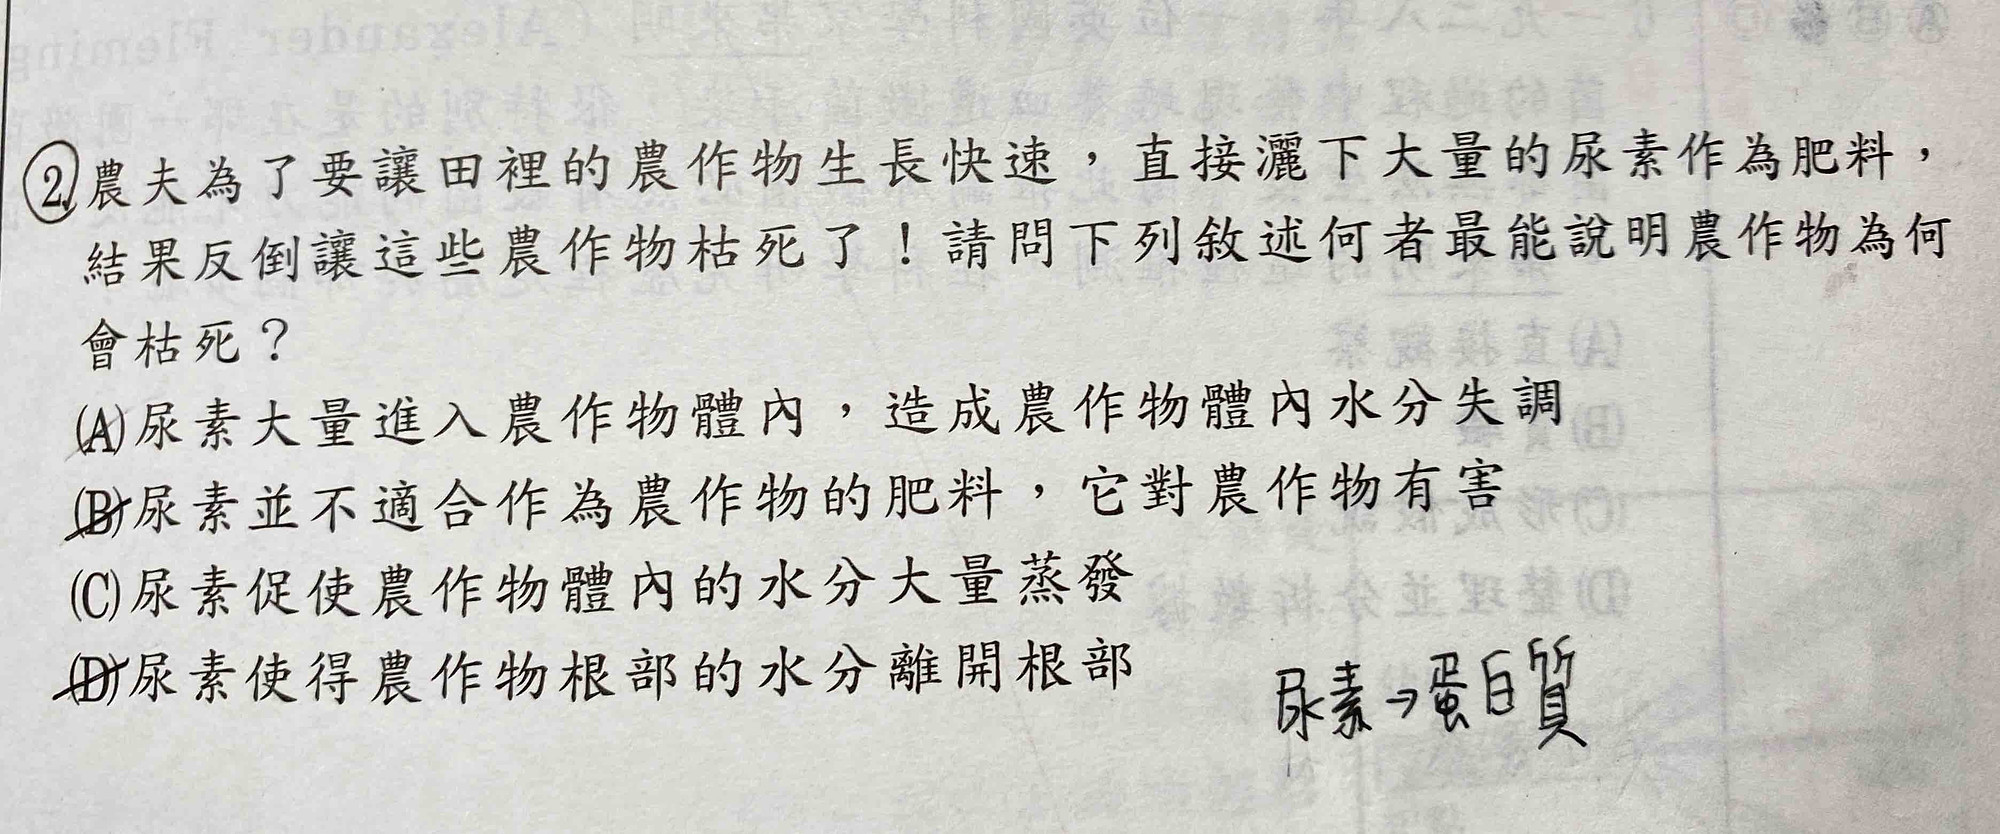 2.農夫為了要讓田裡的農作物生長快速，直接灑下大量的尿素作為肥料，
結果反倒讓這些農作物枯死了！請問下列敘述何者最能說明農作物為何
會枯死？
(A)尿素大量進入農作物體內，造成農作物體內水分失調
(B)尿素並不適合作為農作物的肥料，它對農作物有害
(C)尿素促使農作物體內的水分大量蒸發
(D)尿素使得農作物根部的水分離開根部
尿素→蛋白質